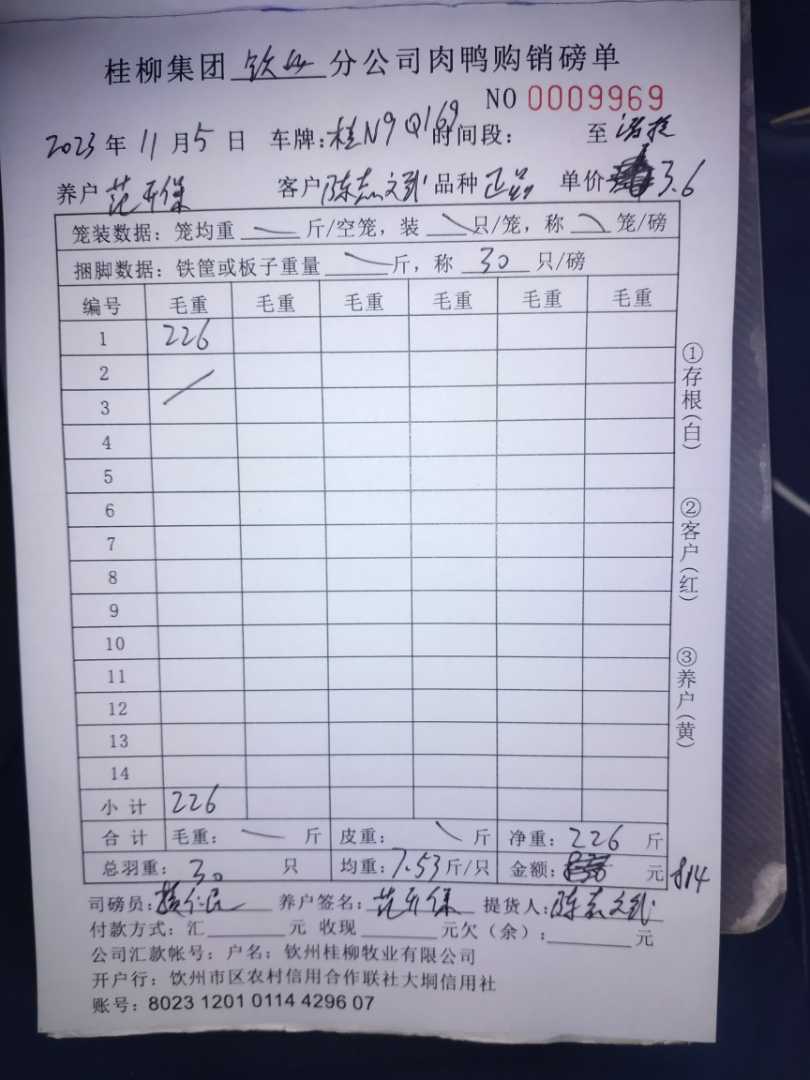 桂柳集团 钦州 分公司肉鸭购销磅单
NO 0009969
2023 年 11 月 5 日 车牌:桂N9Q169 时间段: 至
养户 范开保 客户 陈志文武 品种 正品 单价 3.6
笼装数据:笼均重 斤/空笼,装 只/笼,称 笼/磅
捆脚数据:铁筐或板子重量 斤,称 30 只/磅
编号 毛重 毛重 毛重 毛重 毛重 毛重
1 226
2
3
4
5
6
7
8
9
10
11
12
13
14
小计 226
合计 毛重: 斤 皮重: 斤 净重:226 斤
总羽重:30 只 均重:7.53斤/只 金额: 元 814
司磅员: 养户签名:范开保 提货人:陈志文武
付款方式:汇 元 收现 元欠(余): 元
公司汇款帐号:户名:钦州桂柳牧业有限公司
开户行:钦州市区农村信用合作联社大垌信用社
账号:8023 1201 0114 4296 07
①存根(白)
②客户(红)
③养户(黄)